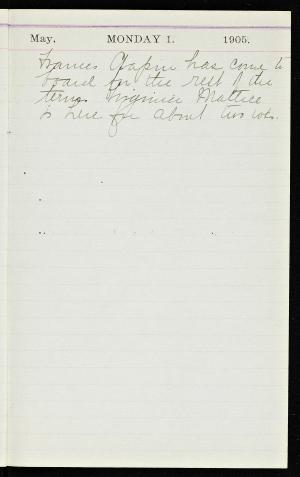 May. MONDAY 1. 1905.
Frances Chapin has come to
board for the rest of the
term. Virginia Mattice
is here for about two wks.